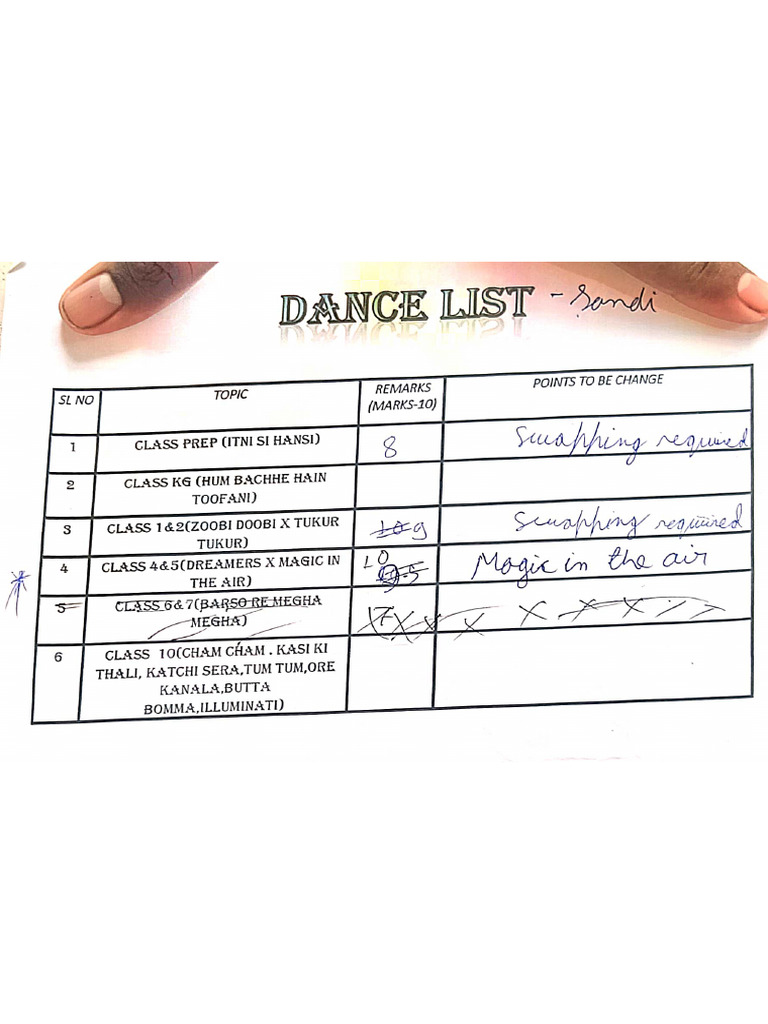 DANCE LIST - Sandi
SL NO TOPIC REMARKS (MARKS-10) POINTS TO BE CHANGE
1 CLASS PREP (ITNI SI HANSI) 8 Swapping required
2 CLASS KG (HUM BACHHE HAIN
TOOFANI)
3 CLASS 1&2(ZOOBI DOOBI X TUKUR
TUKUR) 10 9 Swapping required
4 CLASS 4&5(DREAMERS X MAGIC IN
THE AIR) 10 9.5 Magic in the air
5 CLASS 6&7(BARSO RE MEGHA
MEGHA) 7 X X X X X X
6 CLASS 10(CHAM CHAM . KASI KI
THALI, KATCHI SERA,TUM TUM,ORE
KANALA,BUTTA
BOMMA,ILLUMINATI)